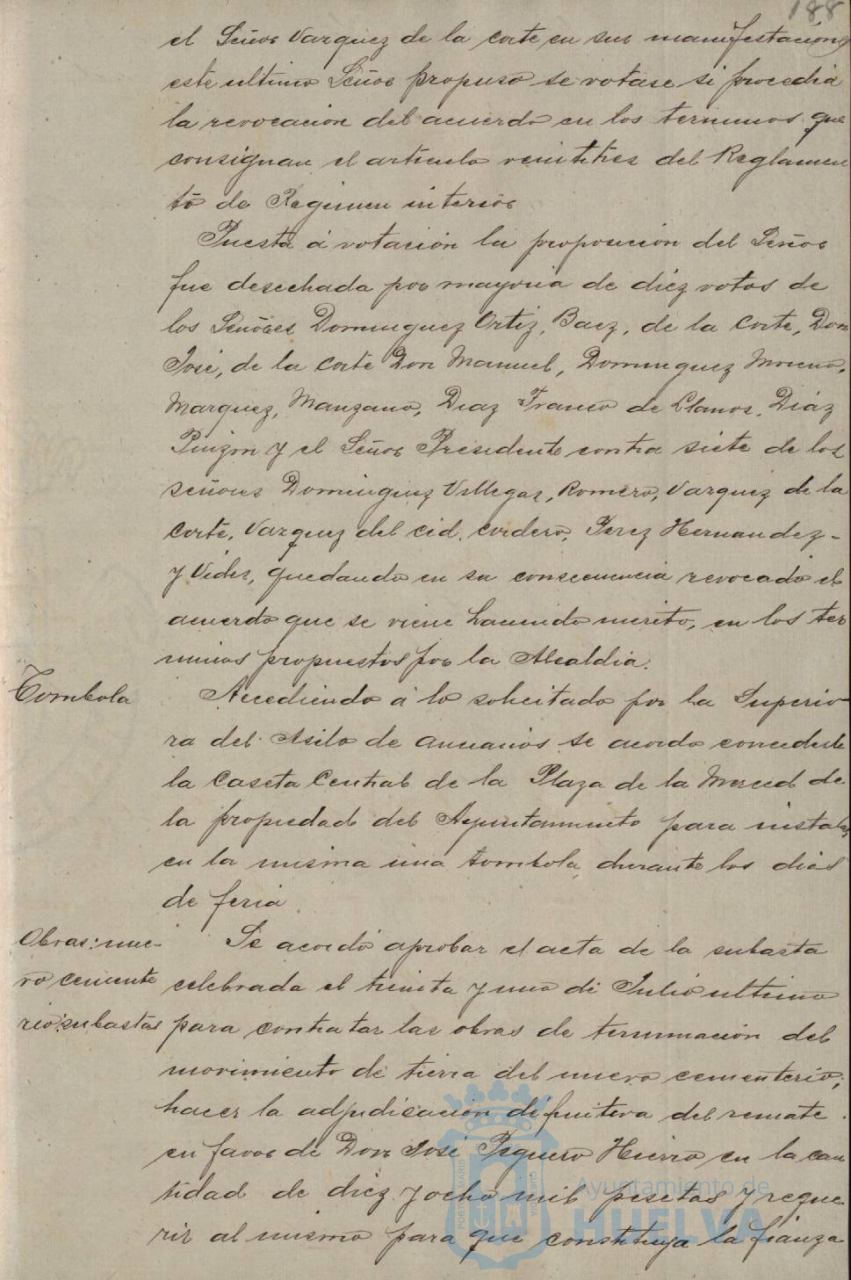 188
el Señor Vazquez de la Corte en sus manifestaciones
este ultimo Señor propuso se votase si procedia
la revocacion del acuerdo en los terminos que
consignan el articulo veintitres del Reglamen
to de Regimen interior
Puesta á votación la proposicion del Señor
fue desechada por mayoria de diez votos de
los Señores Dominguez Ortiz, Baez, de la Corte, Don
José, de la Corte Don Manuel, Dominguez Moreno,
Marquez, Manzano, Diaz Franco de Llanos, Diáz
Pinzon y el Señor Presidente contra siete de los
señores Dominguez Villegas, Romero, Vazquez de la
Corte, Vazquez del Cid, Cordero, Perez Hernandez-
y Vides, quedando en su consecuencia revocado el
acuerdo que se viene haciendo merito, en los ter
minos propuestos por la Alcaldia.
Tombola
Accediendo á lo solicitado por la Superio-
ra del Asilo de ancianos se acordo concederle
la Caseta Central de la Plaza de la Merced de
la propiedad del Ayuntamiento para instalar
en la misma una tombola, durante los dias
de feria
Obras: nue-
vo cemente
rio: subastas
Se acordó aprobar el acta de la subasta
celebrada el treinta y uno de Julio ultimo
para contratar las obras de terminación del
movimiento de tierra del nuevo cementerio;
hacer la adjudicacion definitiva del remate
en favor de Don José Peguero Hierro en la can
tidad de diez y ocho mil pesetas y reque
rir al mismo para que constituya la fianza
Ayuntamiento de
HUELVA